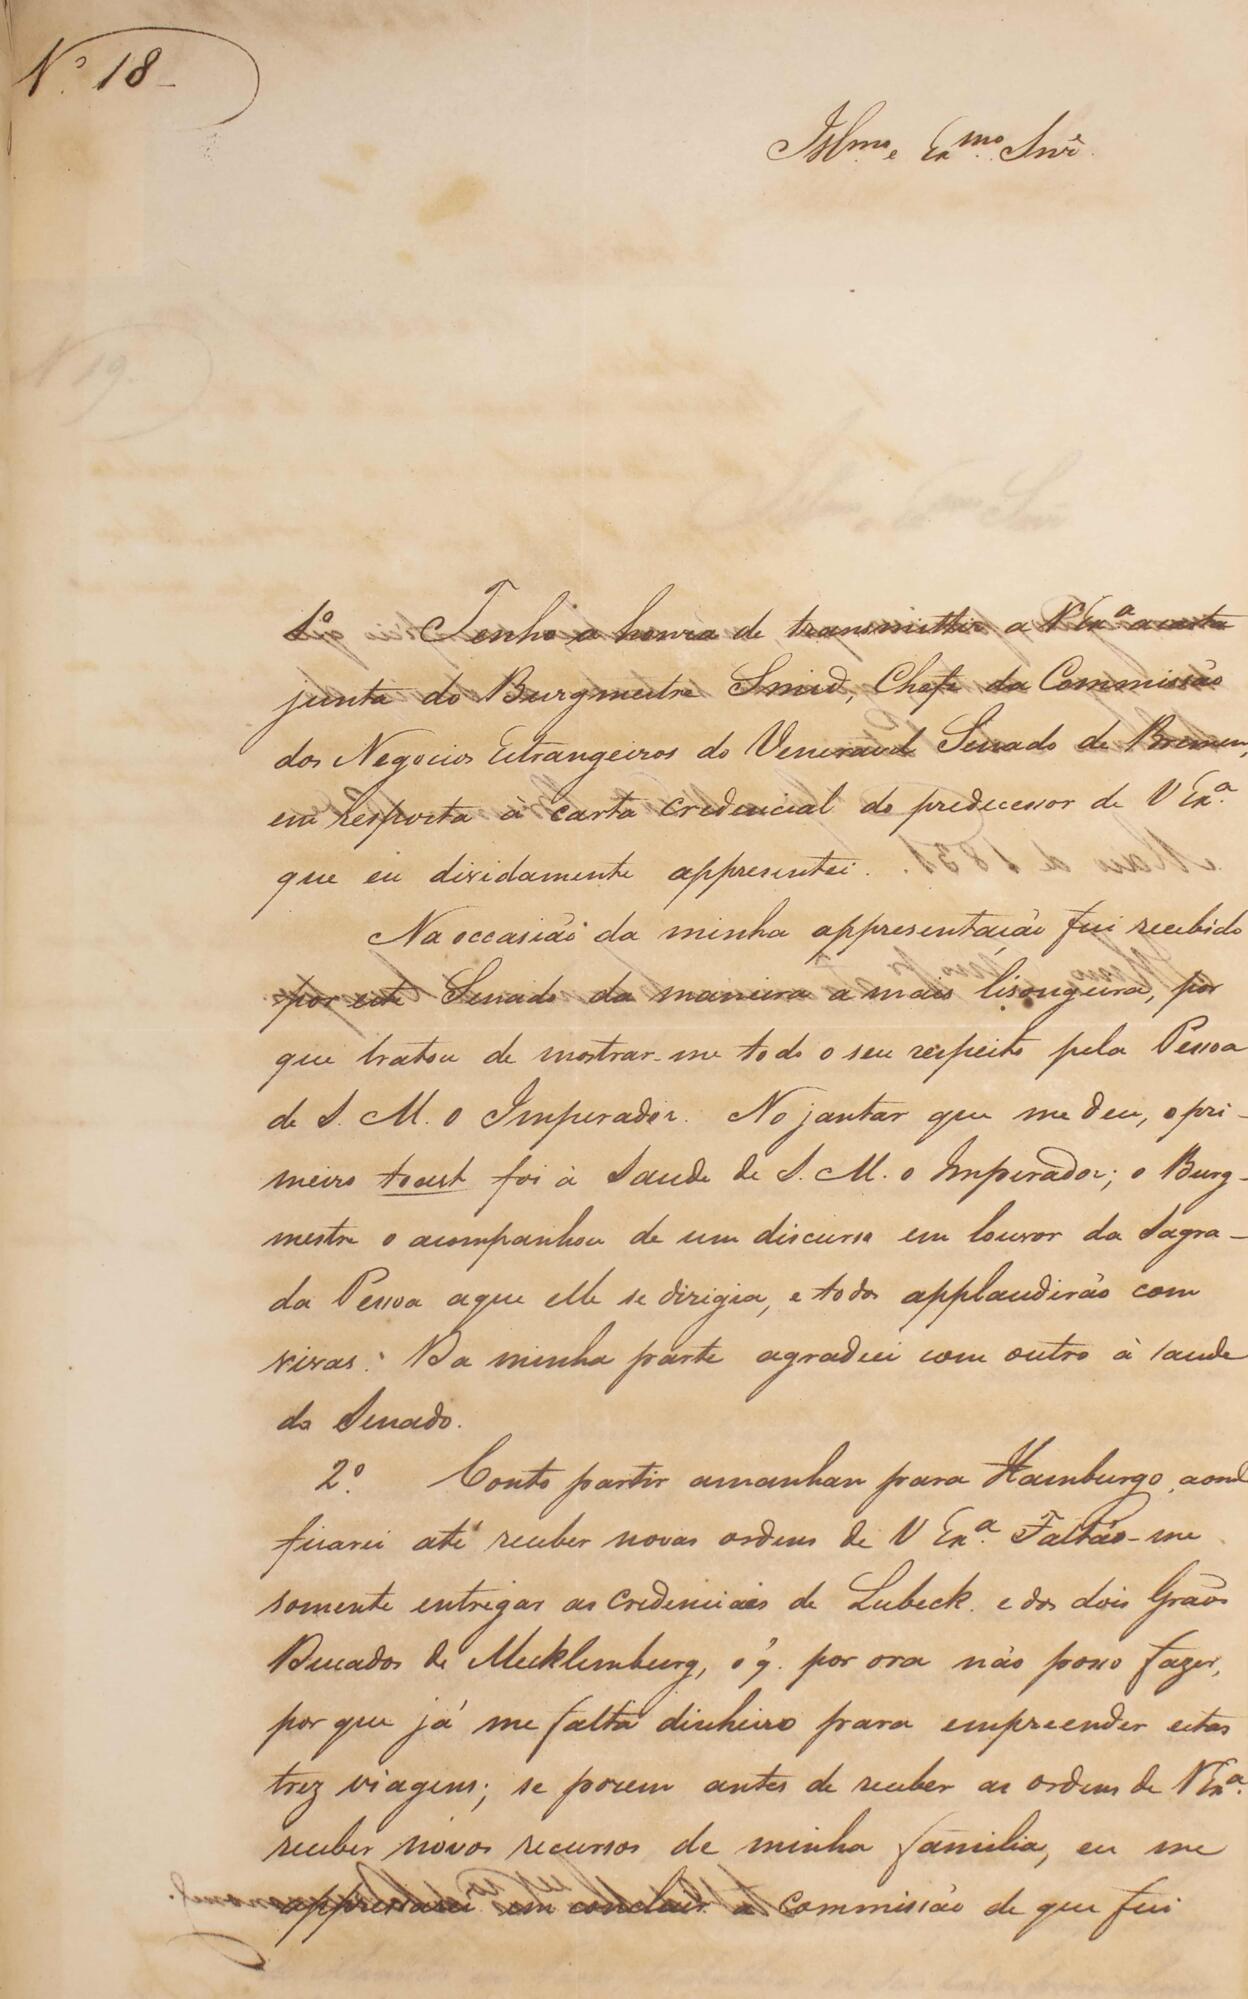 Nº 18
Illmo e Exmo Snr.
1º Tenho a honra de transmittir a V Exª a carta
junta do Burgmestre Smid, Chefe da Commissão
dos Negocios Estrangeiros do Veneravel Senado de Bremen,
em resposta à carta credencial do predecessor de V Exª
que eu dividamente appresentei.
Na occasião da minha appresentação fui recebido
por este Senado da maneira a mais lisongeira, por
que tratou de mostrar-me todo o seu respeito pela Pessoa
de S. M. o Imperador. No jantar que me deu, o pri-
meiro toast foi à Saude de S. M. o Imperador; o Burg-
mestre o acompanhou de um discurso em louvor da Sagra-
da Pessoa aque elle se dirigia, e todos applaudirão com
vivas. Da minha parte agradeci com outro à saude
do Senado.
2º. Conto partir amanhan para Hamburgo, aond
ficarei até receber novas ordens de V Exª. Faltão-me
somente entregar as credenciaes de Lubeck e dos dois Grãos
Ducados de Mecklemburg, o q. por ora não posso fazer,
por que já me falta dinheiro para empreender estas
trez viagens; se porem antes de receber as ordens de V Exª.
receber novos recursos de minha familia, eu me
appressarei em concluir a Commissão de que fui